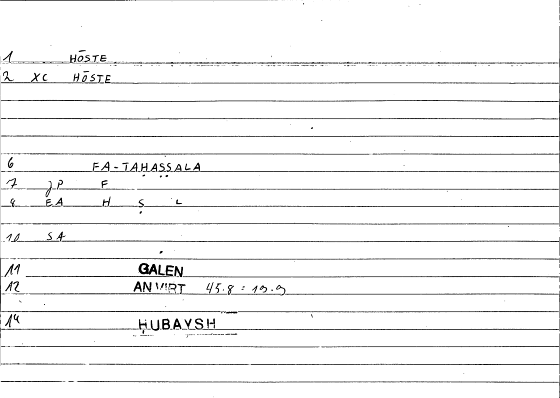 1 HŌSTE
2 XC HŌSTE
6 FA-TAḤAṢṢALA
7 JP F
8 EA H Ṣ L
10 SA
11 GALEN
12 AN VIRT 45.8 : 19.9
14 ḤUBAYSH